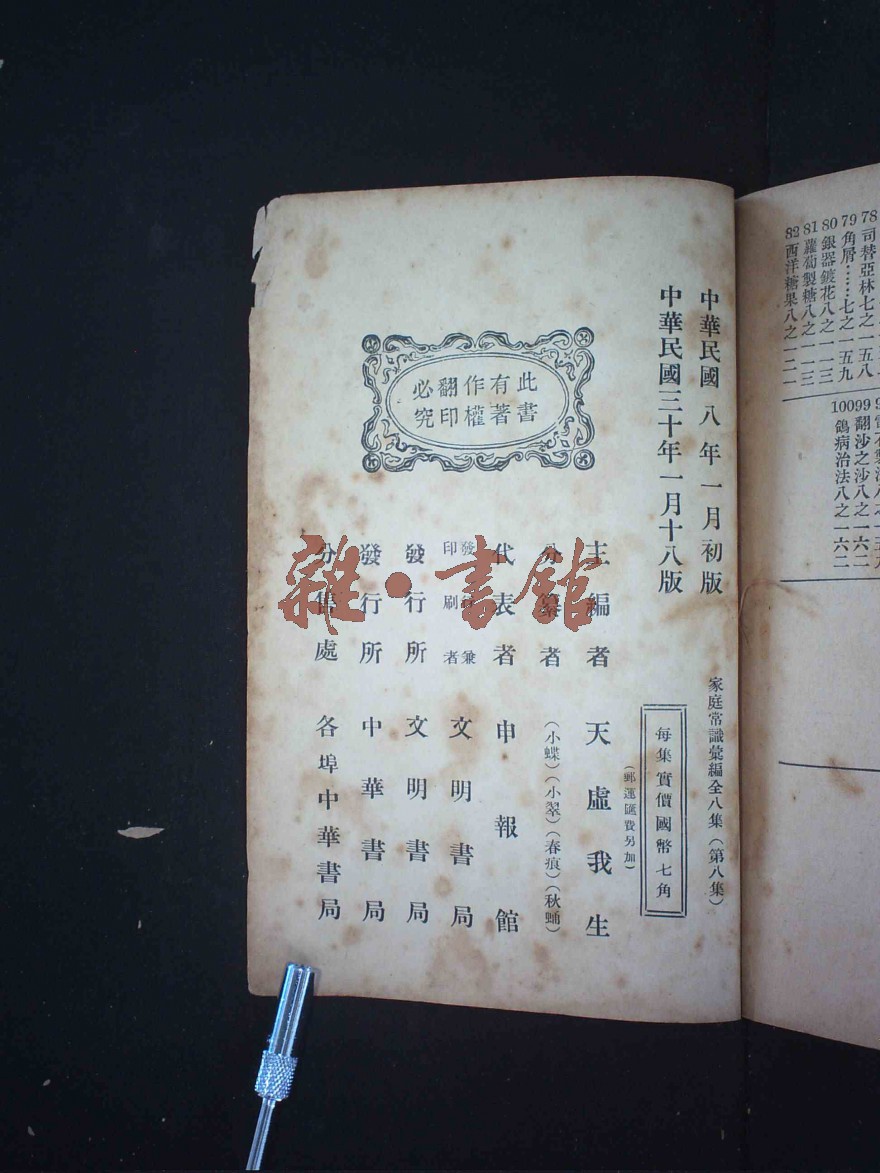 78司替亞林七之一五八
79角屑……七之一五九
80銀器鍍花八之一一三
81蘿蔔製糖八之一一三
82西洋糖果八之一二一
99翻沙之沙八之一六二
100鴿病治法八之一六二
中華民國八年一月初版
中華民國三十年一月十八版
家庭常識彙編全八集(第八集)
每集實價國幣七角
(郵運匯費另加)
此書
有著
作權
翻印
必究
主編者 天虛我生
分纂者 (小蝶)(小翠)(春痕)(秋蛹)
代表者 申報館
發行兼印刷者 文明書局
發行所 文明書局
發行所 中華書局
分售處 各埠中華書局
雜·書館